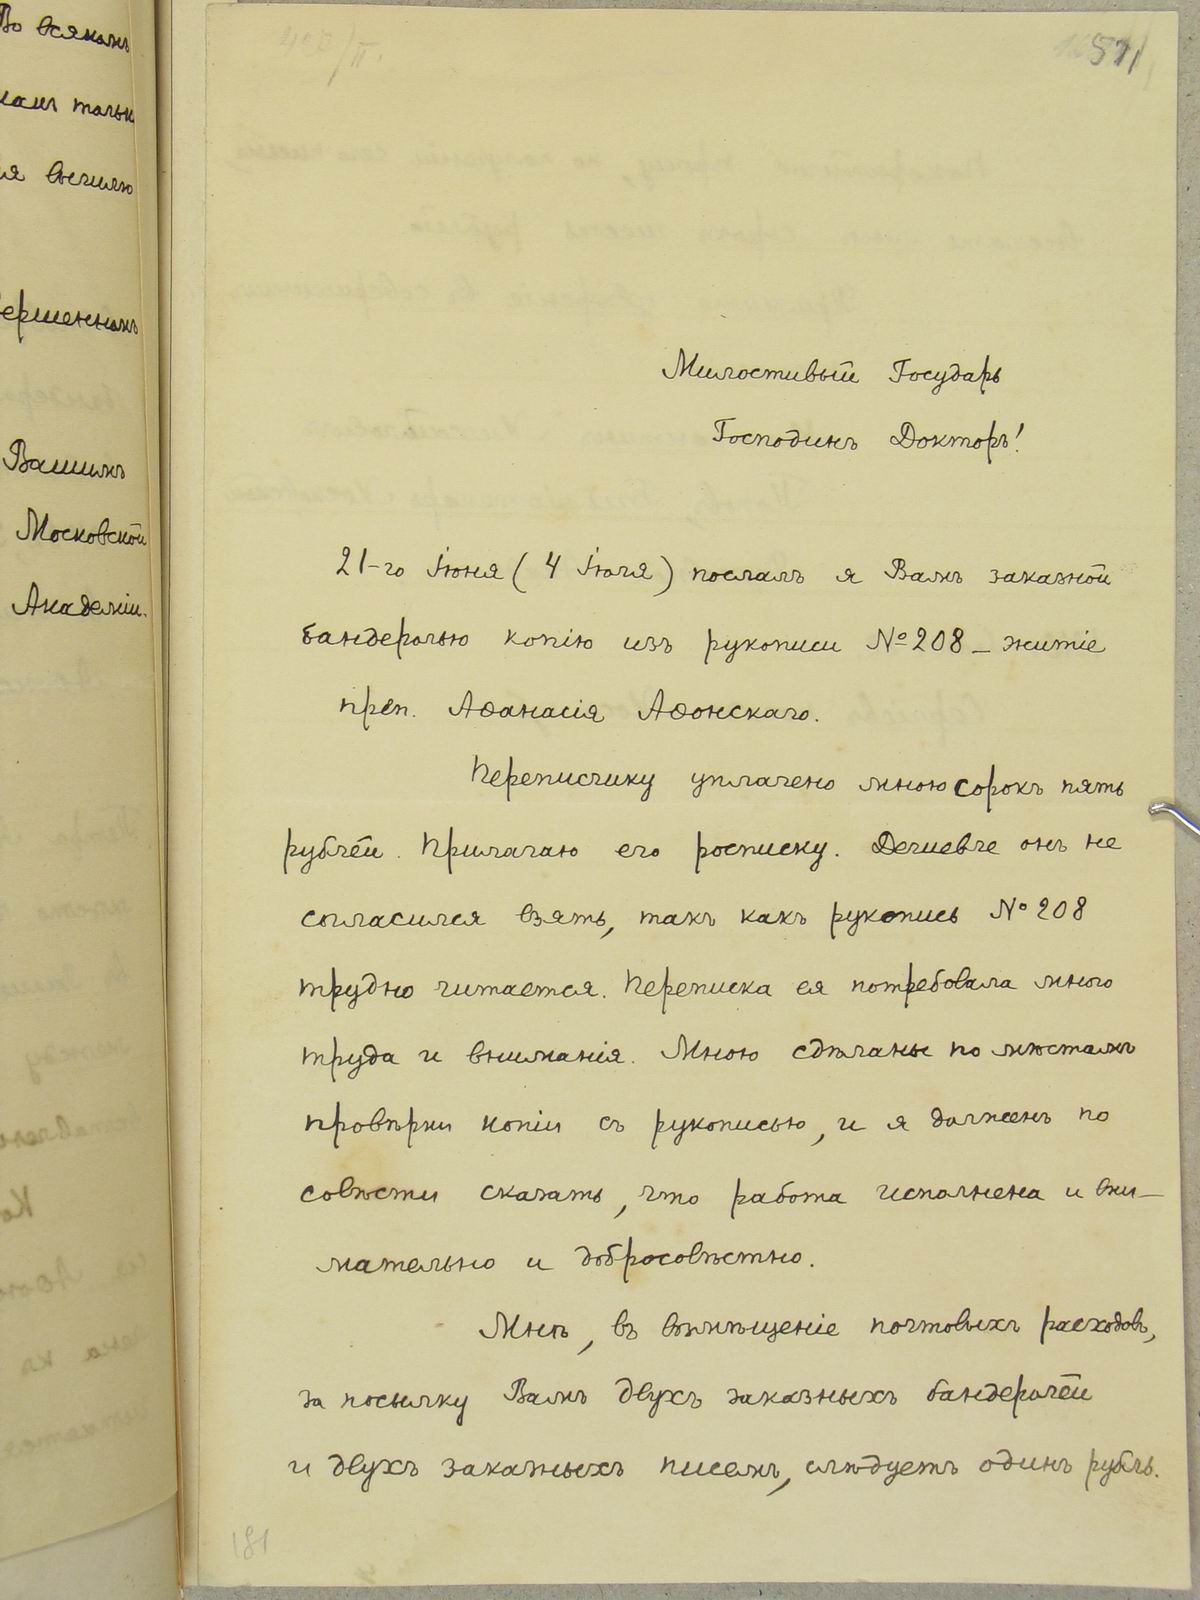 Во всякомъ
только
вычилю
Вашимъ
Московской
Академіи.
57
Милостивый Государь
Господинъ Докторъ!
21-го Іюня (4 Іюля) послалъ я Вамъ заказной
бандеролью копію изъ рукописи № 208 – житіе
преп. Аѳанасія Аѳонскаго.
Переписчику уплачено мною сорокъ пять
рублей. Прилагаю его росписку. Дешевле онъ не
согласился взять, такъ какъ рукопись № 208
трудно читается. Переписка ея потребовала много
труда и вниманія. Мною сдѣланы по мѣстамъ
провѣрки копіи съ рукописью, и я долженъ по
совѣсти сказать, что работа исполнена и вни-
мательно и добросовѣстно.
Мнѣ, въ возмѣщеніе почтовыхъ расходовъ,
за посылку Вамъ двухъ заказныхъ бандеролей
и двухъ заказныхъ писемъ, слѣдуетъ одинъ рубль.
181